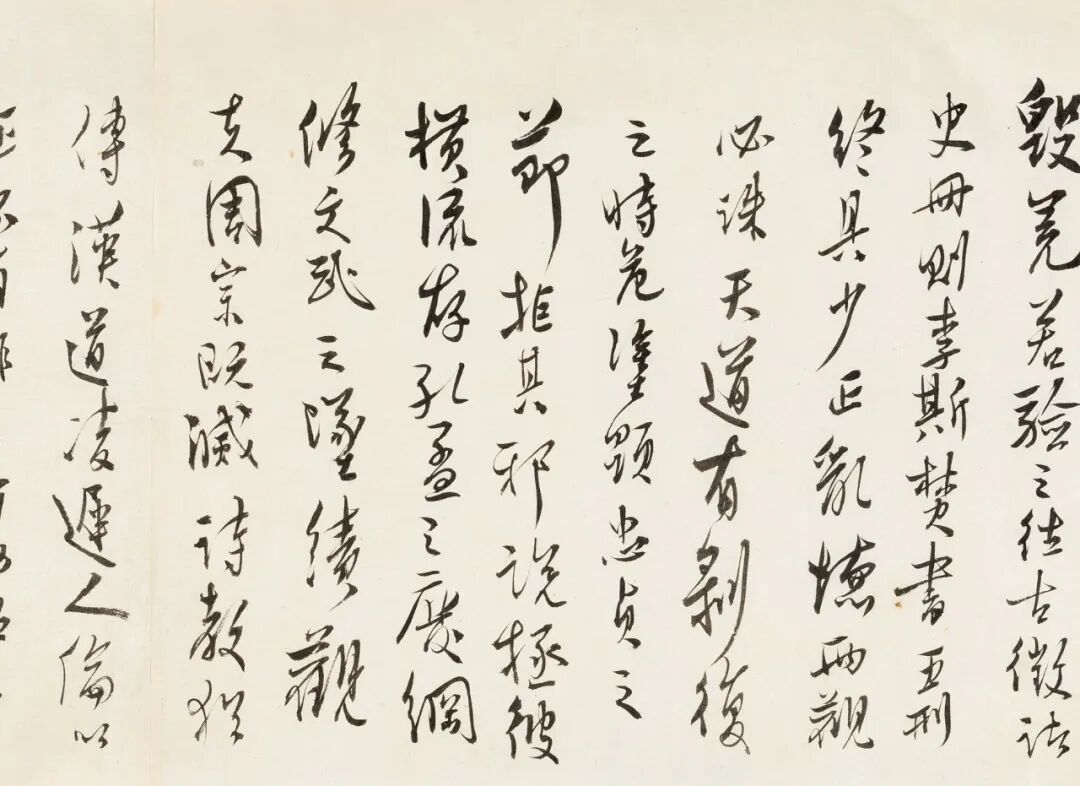 毀堯若驗之往古徵諸
史冊則李斯焚書五刑
終具少正亂德兩觀
必誅天道有剝復
之時危塗顯忠貞之
節拒其邪說拯彼
橫流存孔孟之廢綱
修文武之墜績觀
夫周宗既滅詩教猶
傳漢道凌遲人倫以